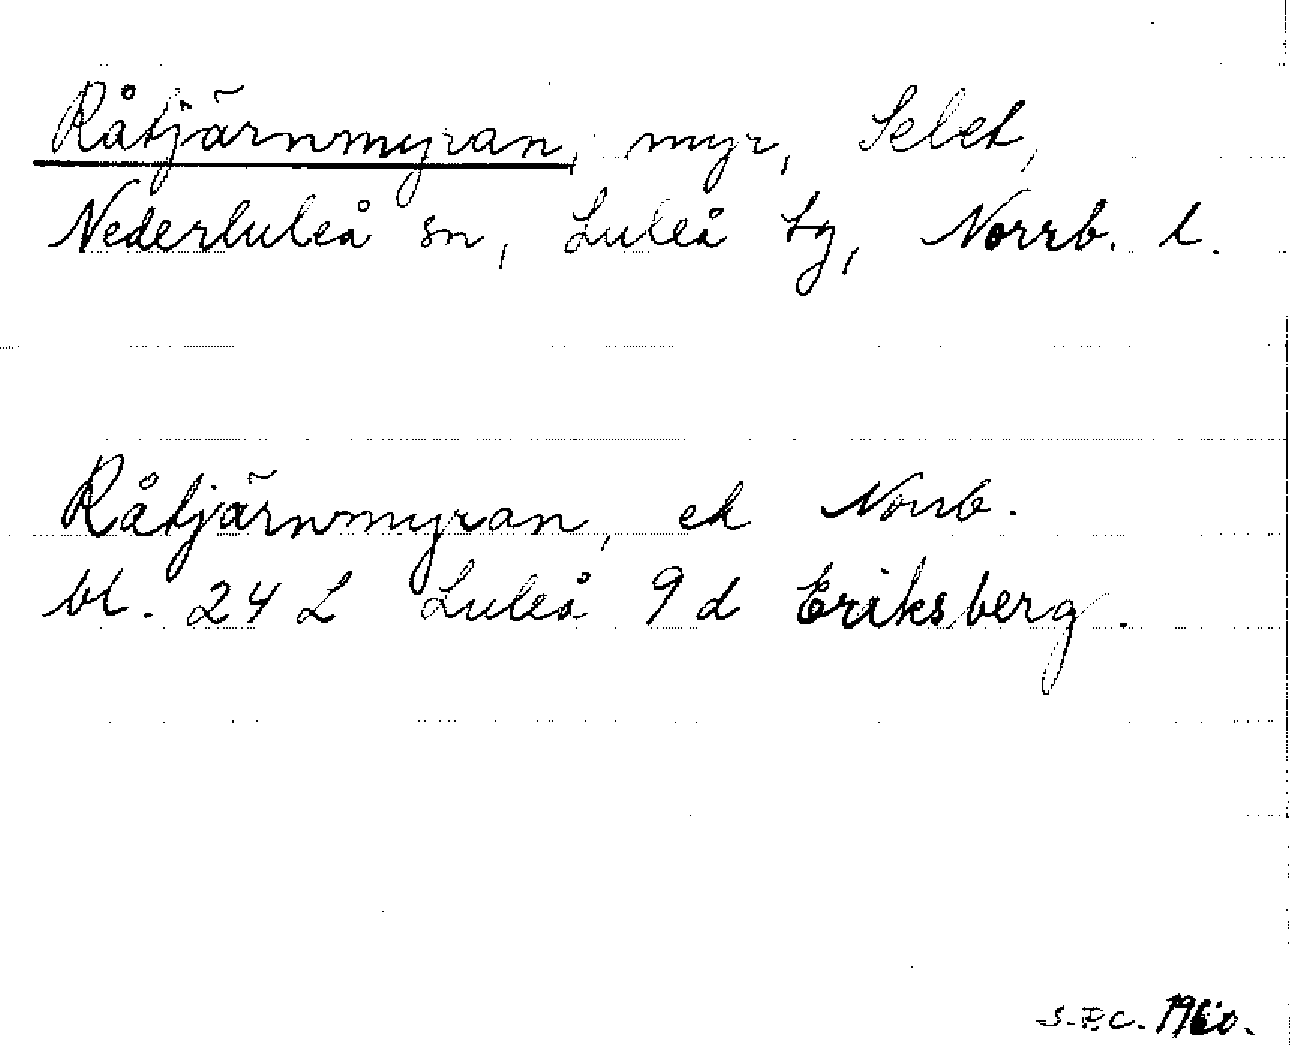 Råtjärnmyran, myr, Selet,
Nederluleå sn, Luleå tg, Norrb. l.
Råtjärnmyran, ek Norrb.
bl. 24 L Luleå 9 d Eriksberg.
1960.